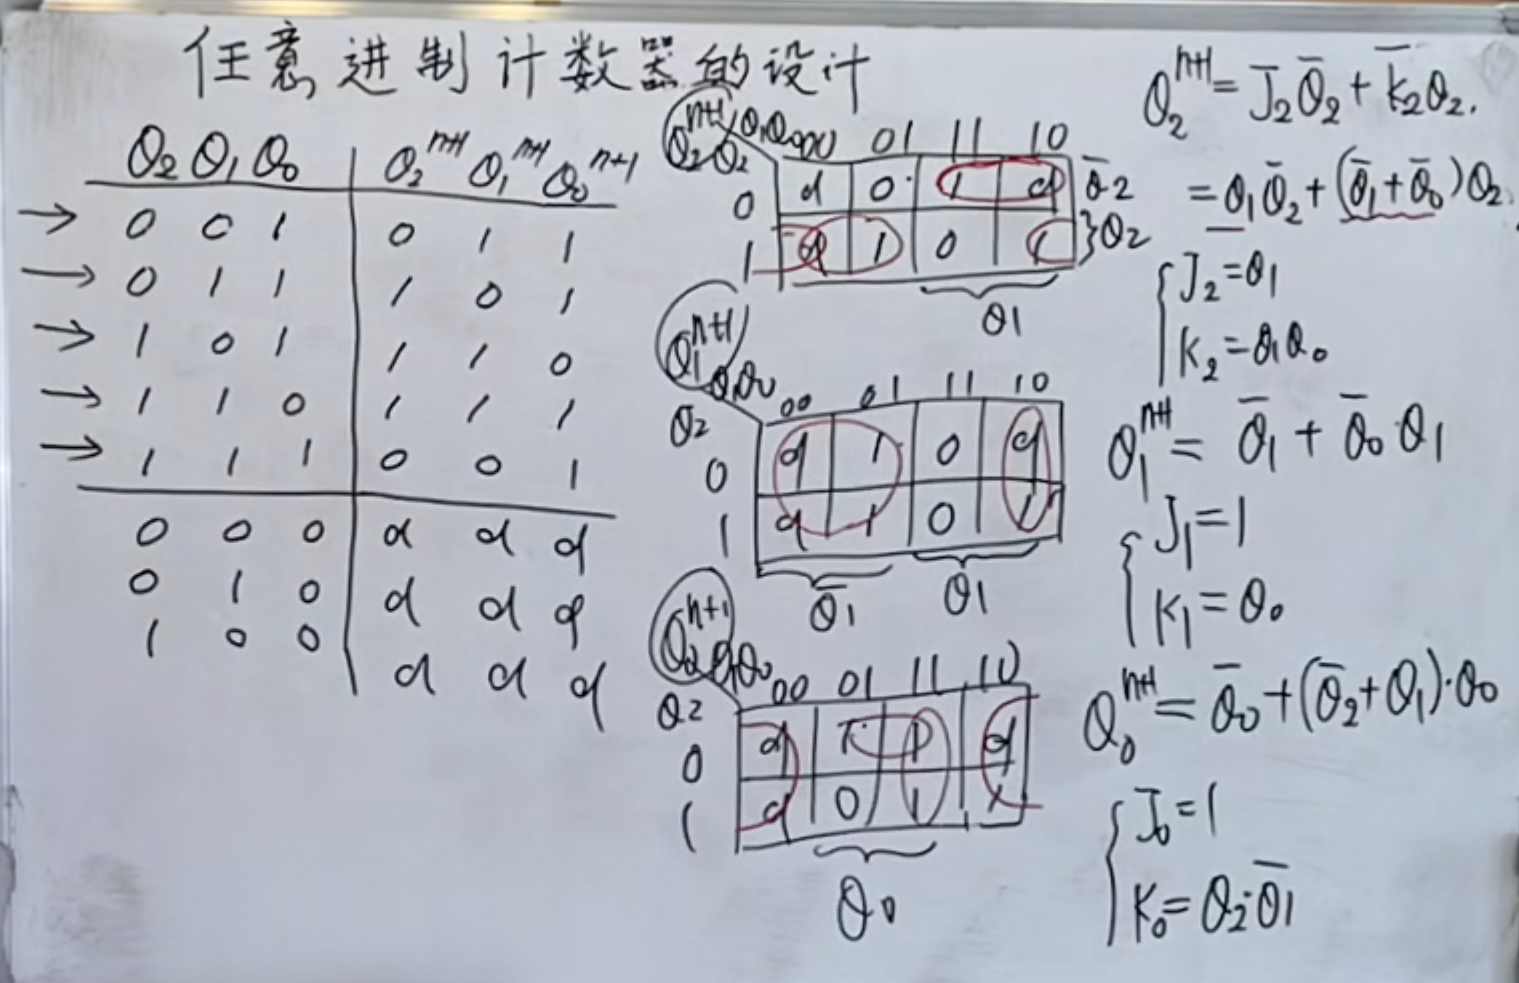 任意进制计数器的设计
Q2 Q1 Q0 | Q2^{n+1} Q1^{n+1} Q0^{n+1}
→ 0 0 1 | 0 1 1
→ 0 1 1 | 1 0 1
→ 1 0 1 | 1 1 0
→ 1 1 0 | 1 1 1
→ 1 1 1 | 0 0 1
0 0 0 | d d d
0 1 0 | d d d
1 0 0 | d d d
Q2^{n+1} Q1Q0 00 01 11 10
Q2
0 d 0 1 d Q̄2
1 d 1 0 1 }Q2
Q1
Q1^{n+1} Q1Q0 00 01 11 10
Q2
0 d 1 0 d
1 d 1 0 1
Q̄1 Q1
Q0^{n+1} Q1Q0 00 01 11 10
Q2
0 d 1 1 d
1 d 0 1 1
Q0
Q2^{n+1} = J2Q̄2 + K̄2Q2.
= Q1Q̄2 + (Q̄1+Q̄0)Q2
J2=Q1
K2=Q1Q0
Q1^{n+1} = Q̄1 + Q̄0·Q1
J1=1
K1=Q0
Q0^{n+1} = Q̄0+(Q̄2+Q1)·Q0
J0=1
K0=Q2·Q̄1